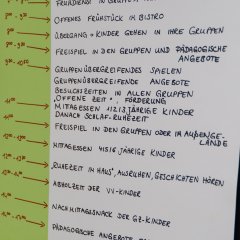 FRÜHDIENST IN GRUPPEN
OFFENES FRÜHSTÜCK IN BISTRO
8:00 - 9:00
ÜBERGANG - KINDER GEHEN IN IHRE GRUPPEN
FREISPIEL IN DEN GRUPPEN UND PÄDAGOGISCHE
ANGEBOTE
GRUPPENÜBERGREIFENDES SPIELEN
GRUPPENÜBERGREIFENDE ANGEBOTE
BESUCHSZEITEN IN ALLEN GRUPPEN
"OFFENE ZEIT", FÖRDERUNG
MITTAGESSEN 1/2/3 JÄHRIGE KINDER
DANACH SCHLAF-RUHEZEIT
FREISPIEL IN DEN GRUPPEN ODER IM AUßENGE-
LÄNDE
MITTAGESSEN 4/5/6 JÄHRIGE KINDER
"RUHEZEIT IM HAUS", AUSRUHEN, GESCHICHTEN HÖREN
ABHOLZEIT DER VV-KINDER
NACHMITTAGSSNACK DER GZ-KINDER
PÄDAGOGISCHE ANGEBOTE